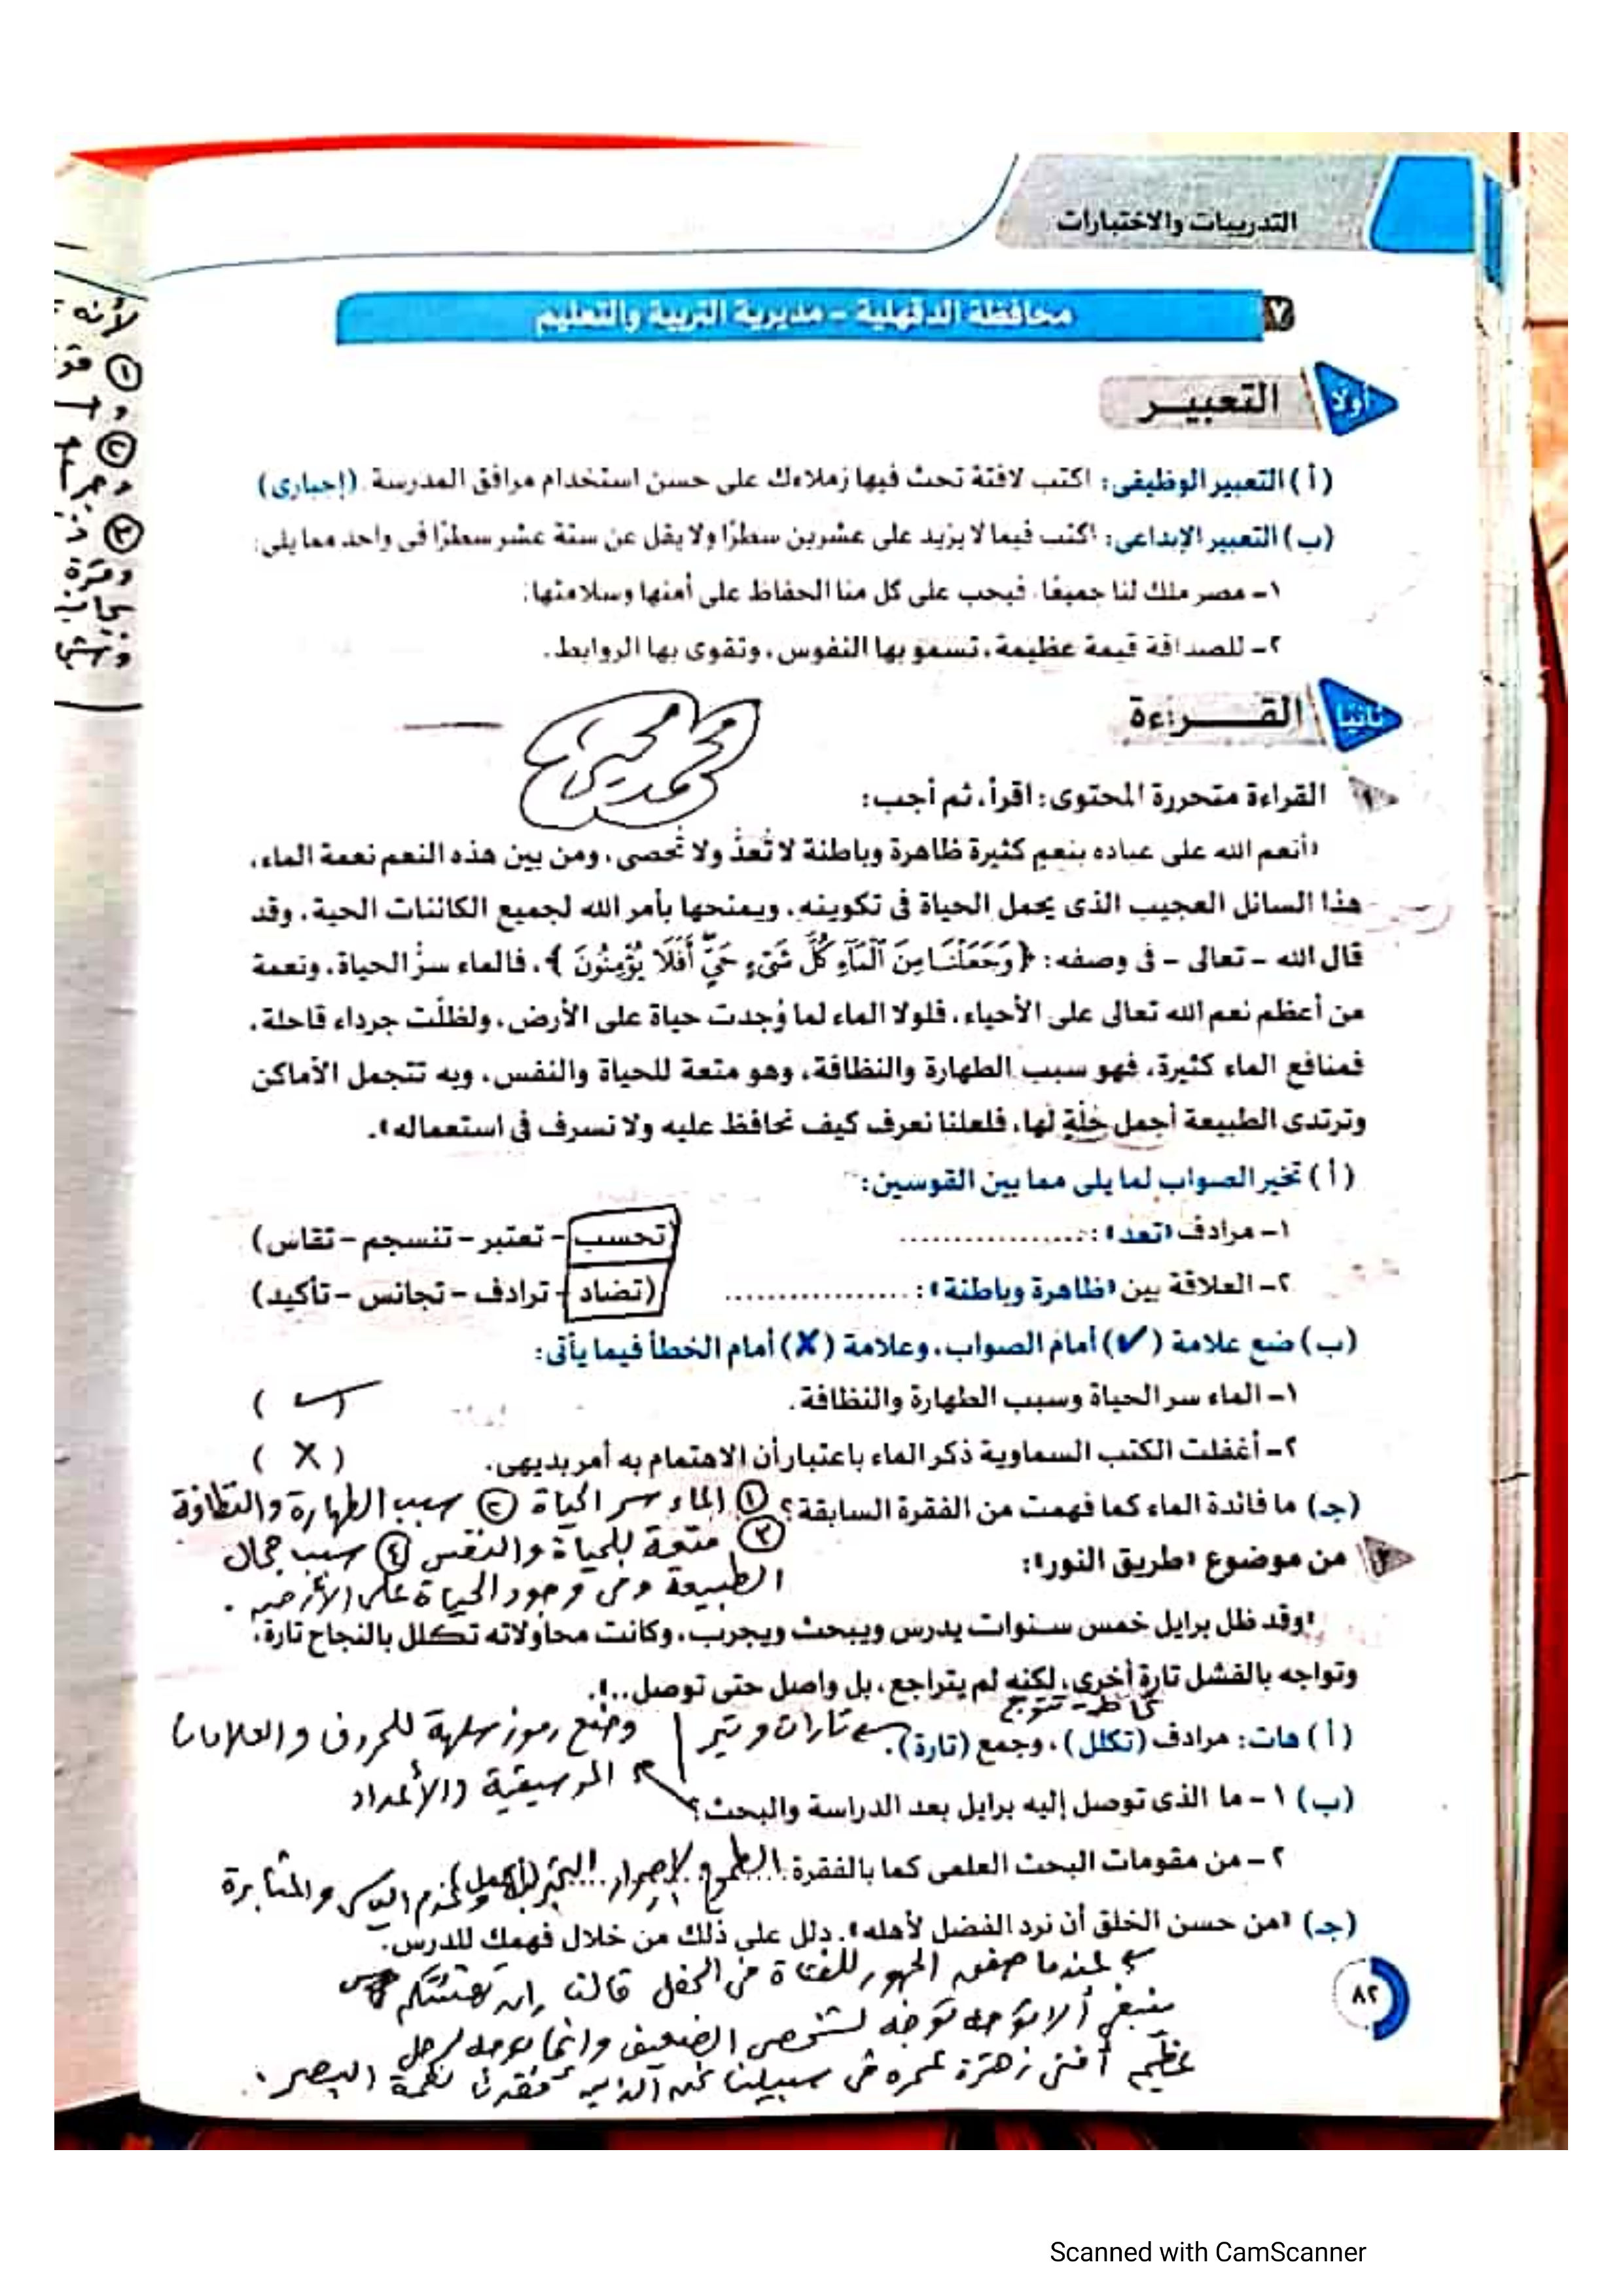 التدريبات والاختبارات
٧ محافظة الدقهلية – مديرية التربية والتعليم
أولا التعبيــر
(أ) التعبير الوظيفى: اكتب لافتة تحث فيها زملاءك على حسن استخدام مرافق المدرسة. (إجبارى)
(ب) التعبير الإبداعى: اكتب فيما لا يزيد على عشرين سطرًا ولا يقل عن ستة عشر سطرًا فى واحد مما يلى:
١– مصر ملك لنا جميعًا، فيجب على كل منا الحفاظ على أمنها وسلامتها.
٢– للصداقة قيمة عظيمة، تسمو بها النفوس، وتقوى بها الروابط.
ثانيا القــــراءة
محمد
١ القراءة متحررة المحتوى: اقرأ، ثم أجب:
«أنعم الله على عباده بنعمٍ كثيرة ظاهرة وباطنة لا تُعدُّ ولا تُحصى، ومن بين هذه النعم نعمة الماء،
هذا السائل العجيب الذى يحمل الحياة فى تكوينه، ويمنحها بأمر الله لجميع الكائنات الحية، وقد
قال الله – تعالى – فى وصفه: ﴿وَجَعَلْنَا مِنَ ٱلْمَآءِ كُلَّ شَىْءٍ حَىٍّ أَفَلَا يُؤْمِنُونَ﴾، فالماء سرُّ الحياة، ونعمة
من أعظم نعم الله تعالى على الأحياء، فلولا الماء لما وُجدت حياة على الأرض، ولظلَّت جرداء قاحلة،
فمنافع الماء كثيرة، فهو سبب الطهارة والنظافة، وهو متعة للحياة والنفس، وبه تتجمل الأماكن
وترتدى الطبيعة أجمل حُلَّةٍ لها، فلعلنا نعرف كيف نحافظ عليه ولا نسرف فى استعماله».
(أ) تخير الصواب لما يلى مما بين القوسين:
١– مرادف «تعد»: ................. (تحسب – تعتبر – تنسجم – تقاس)
٢– العلاقة بين «ظاهرة وباطنة»: ................. (تضاد – ترادف – تجانس – تأكيد)
(ب) ضع علامة (✓) أمام الصواب، وعلامة (✗) أمام الخطأ فيما يأتى:
١– الماء سر الحياة وسبب الطهارة والنظافة. (✓)
٢– أغفلت الكتب السماوية ذكر الماء باعتبار أن الاهتمام به أمر بديهى. (X)
(جـ) ما فائدة الماء كما فهمت من الفقرة السابقة؟ ① الماء سر الحياة ② سبب الطهارة والنظافة
③ متعة للحياة والنفس ④ سبب جمال
الطبيعة وفى وجود الحياة على الأرض.
٢ من موضوع «طريق النور»:
«وقد ظل برايل خمس سنوات يدرس ويبحث ويجرب، وكانت محاولاته تكلل بالنجاح تارة،
وتواجه بالفشل تارة أخرى، لكنه لم يتراجع، بل واصل حتى توصل..».
تحاط – تتوج
(أ) هات: مرادف (تكلل)، وجمع (تارة). تارات وتير
وضع رموز سهلة للحروف والعلامات
الموسيقية والأعداد
(ب) ١– ما الذى توصل إليه برايل بعد الدراسة والبحث؟
٢– من مقومات البحث العلمى كما بالفقرة: الطموح والإصرار وعدم اليأس والمثابرة
(جـ) «من حسن الخلق أن نرد الفضل لأهله». دلل على ذلك من خلال فهمك للدرس.
عندما صفق الجمهور للفتاة فى الحفل قالت إن تهنئتكم
ينبغى ألا توجه لشخصى الضعيف وإنما توجه لرجل
عظيم أفنى زهرة عمره فى سبيلنا نحن الذين فقدنا نعمة البصر.
٨٢
لأنه
①
②
③
Scanned with CamScanner